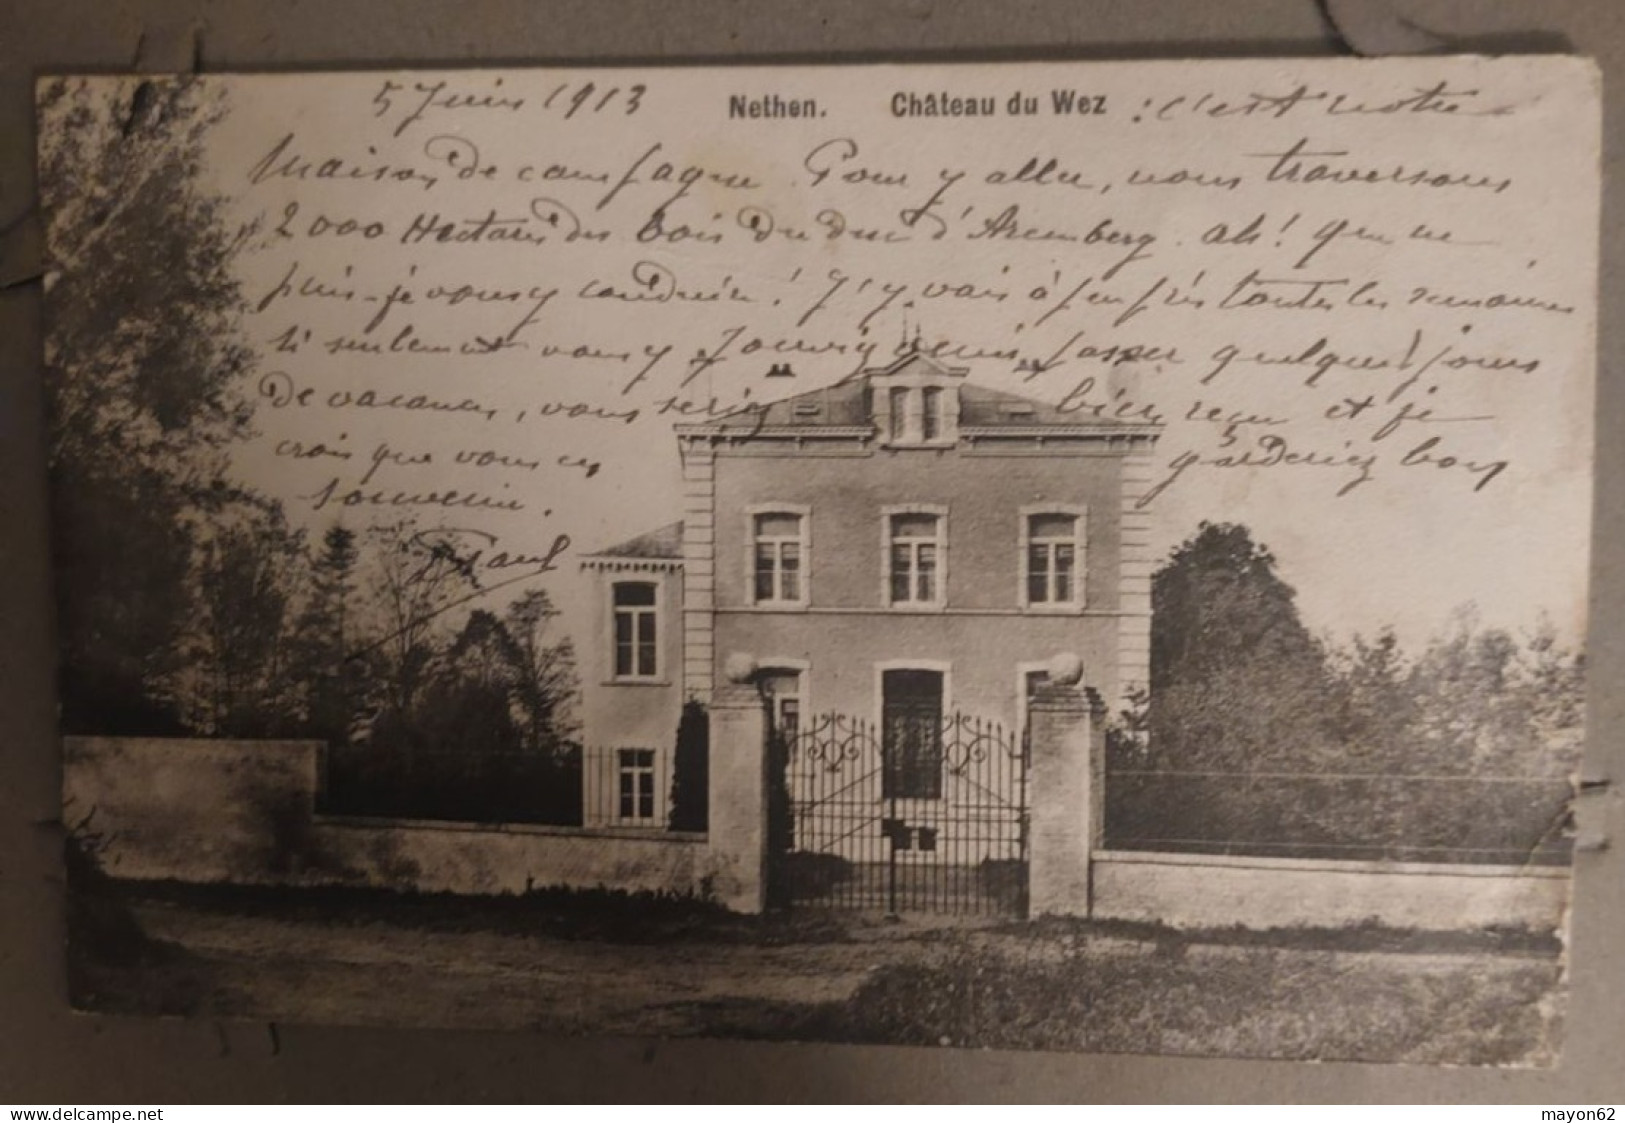 5 Juin 1913 Nethen. Château du Wez : c'est notre
maison de campagne. Pour y aller, nous traversons
2000 Hectares des bois du duc d'Aremberg. Ah! que ne
puis-je vous y conduire! J'y vais à peu près toutes les semaines
si seulement vous y pouviez venir passer quelques jours
de vacances, vous seriez bien reçu et je
crois que vous en garderiez bon
souvenir.
Paul
delcampe.net
mayon62